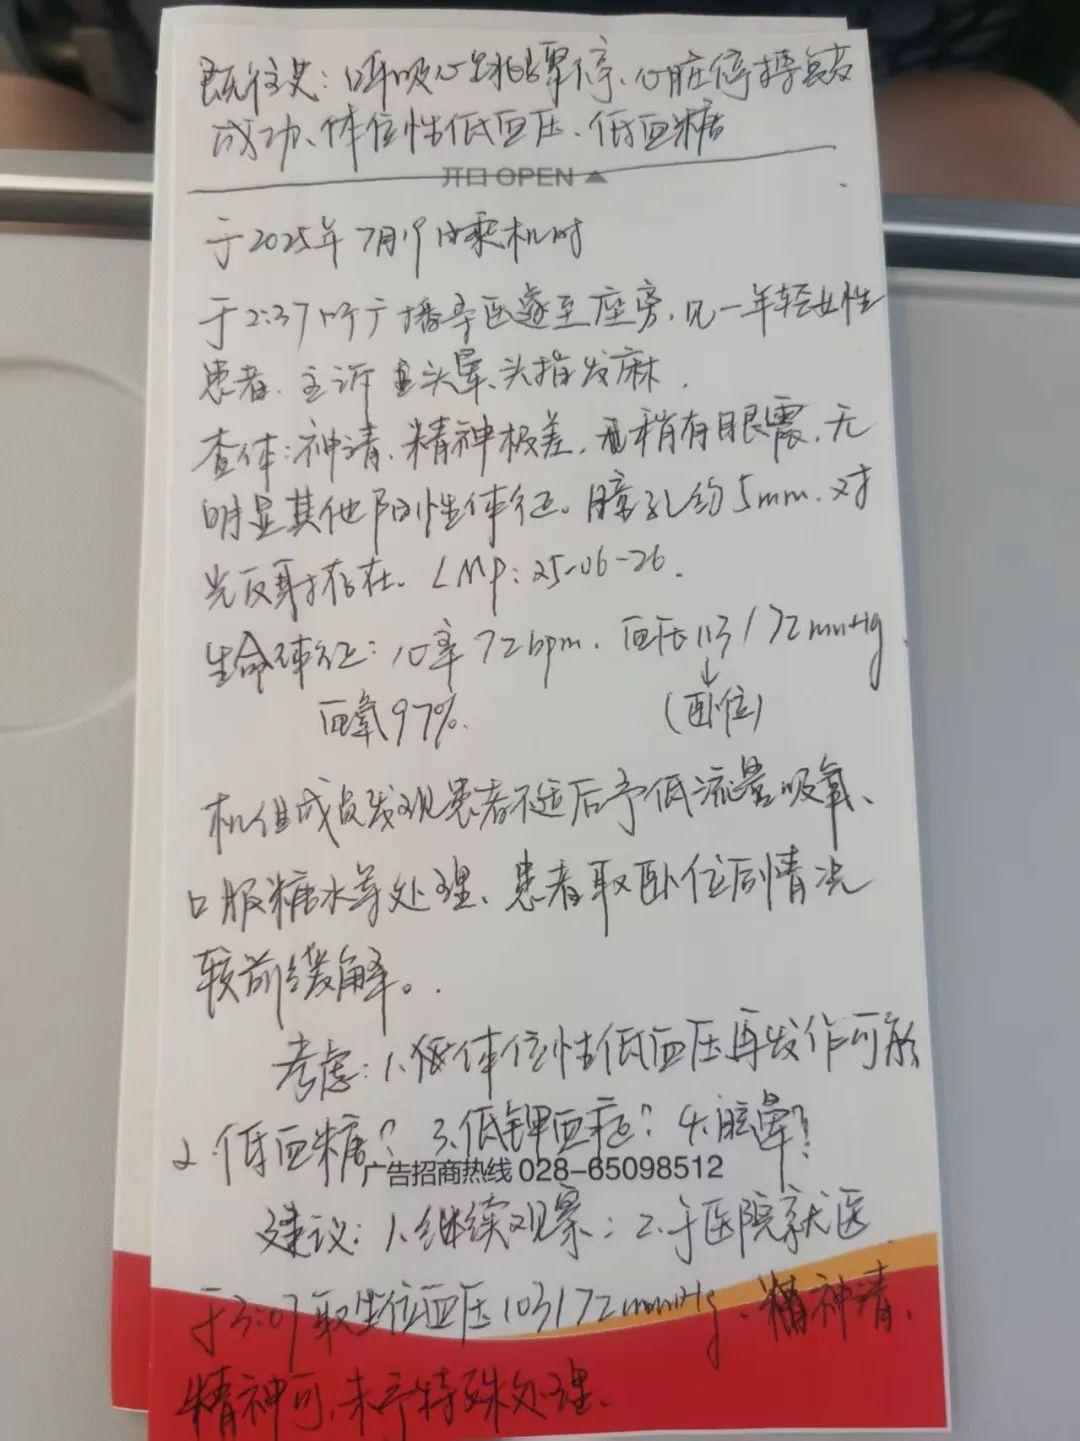 既往史：呼吸心跳骤停、心脏停搏复苏
成功、体位性低血压、低血糖
开口 OPEN
于2025年7月19日乘机时
于2:37听广播寻医遂至座旁，见一年轻女性
患者，主诉头晕、头指发麻．
查体：神清、精神极差，稍有眼震，无
明显其他阳性体征。瞳孔约5mm．对
光反射存在。LMP：25-06-26．
生命体征：心率72bpm．血压113/72mmHg．
血氧97%．（卧位）
机组成员发现患者不适后予低流量吸氧、
口服糖水等处理、患者取卧位后情况
较前缓解。．
考虑：1.体位性低血压再发作可能
2.低血糖？3.低钾血症？4.眩晕？
广告招商热线 028-65098512
建议：1.继续观察；2.于医院就医
于3:07取坐位血压103/72mmHg、神清，
精神可，未予特殊处理．